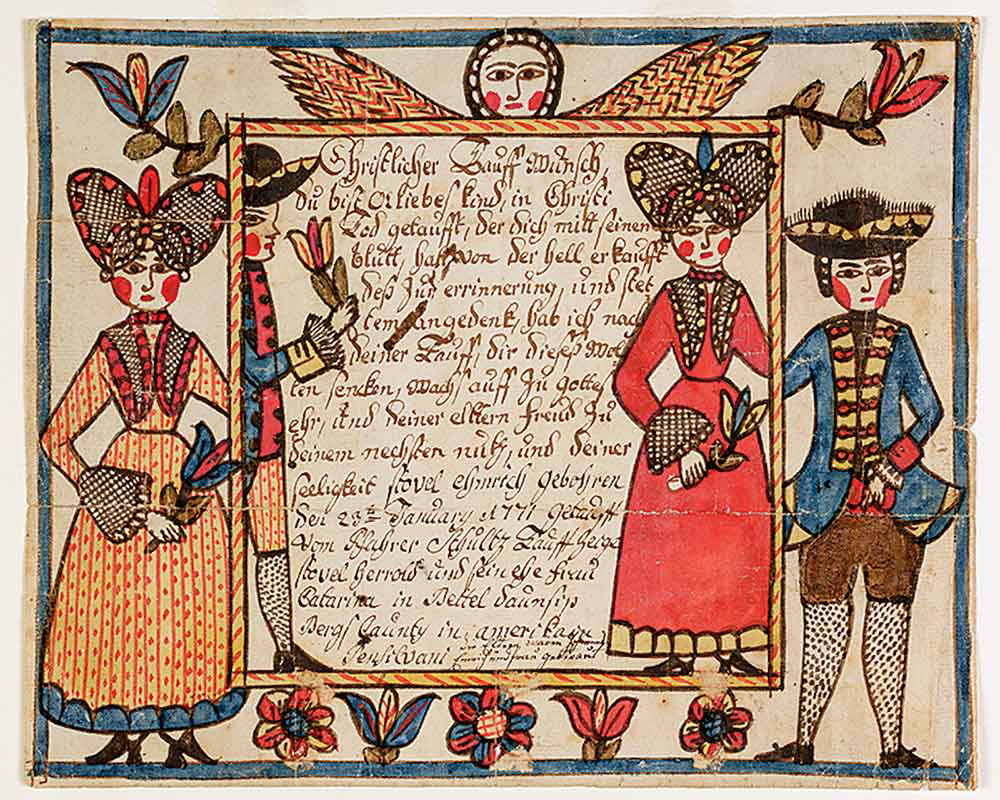 Christlicher Tauff Wunsch,
Du bist O liebes kind, in Christi
Tod getaufft, der dich mitt seinem
blutt, hatt von der hell erkaufft
deß Zur errinnerung, und stet
tem angedenk, hab ich nach
deiner Tauff, dir dieseß wol
len sencken, Wachs auff Zu gottes
ehr, und deiner eltern freud Zu
deinem nechsten nutz, und deiner
seeligkeit stovel ehmrich gebohren
den 23ten January 1777 getaufft
vom Pfahrer Schultz Tauff Zeuge
stovel herrold und sein ehe frau
Catarina in Bettel Taunsip
Bergs Caunty in amerika
Pensilvani